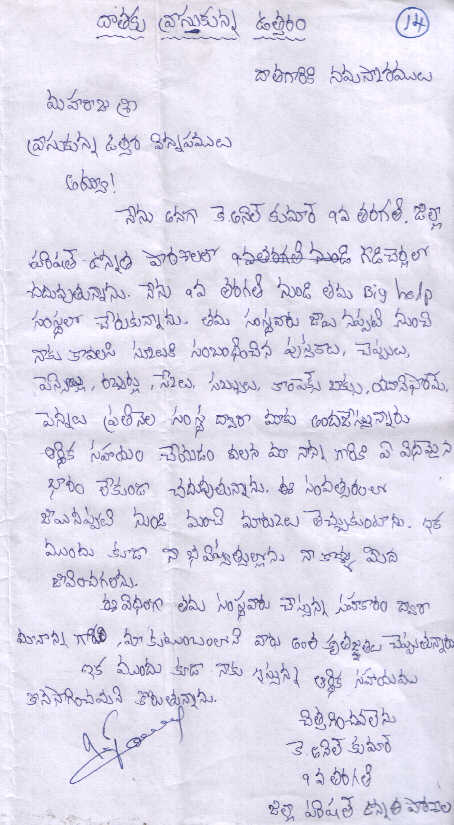 దాతకు వ్రాసుకున్న ఉత్తరం
14
దాతగారికి నమస్కారములు
మహారాజ శ్రీ
వ్రాసుకున్న ఉత్తర విన్నపములు
అయ్యా!
నేను అనగా కె. అనిల్ కుమార్ ৭వ తరగతి, జిల్లా
పరిషత్ ఉన్నత పాఠశాలలో గొడిచర్లలో
చదువుతున్నాను. నేను ৭వ తరగతి నుండి తమ Big help
సంస్థలో చేరుకున్నాను. తమ సంస్థవారు జాయినప్పటి నుంచి
నాకు కావలసి సంబంధించిన పుస్తకాలు, చెప్పులు,
పెన్సిల్లు, రబ్బర్లు, సబ్బులు, కాంపెక్సు బాక్సు, యూనిఫారమ్,
పెన్నులు ప్రతినెల సంస్థ ద్వారా మాకు అందజేస్తున్నారు
ఆర్థిక సహాయం చేయడం వలన మా నాన్న గారికి ఏ విధమైన
భారం లేకుండా చదువుతున్నాను. ఈ సంవత్సరంలో
జాయినప్పటి నుండి మంచి మార్కులు తెచ్చుకుంటాను. ఇక
ముందు కూడా నా భవిష్యత్తుల్లోను నా కాళ్ళ మీద
జీవించగలను.
ఈ విధంగా తమ సంస్థవారు చేస్తున్న సహకారం ద్వారా
మానాన్న గారికి, మా కుటుంబంలోని వారు అంత కృతజ్ఞతలు చెప్పుతున్నారు
ఇక ముందు కూడా నాకు ఇస్తున్న ఆర్థిక సహాయము
కొనసాగించమని కోరుతున్నాను.
చిత్తగించవలెను
కె. అనిల్ కుమార్
৭వ తరగతి
జిల్లా పరిషత్ ఉన్నత పాఠశాల